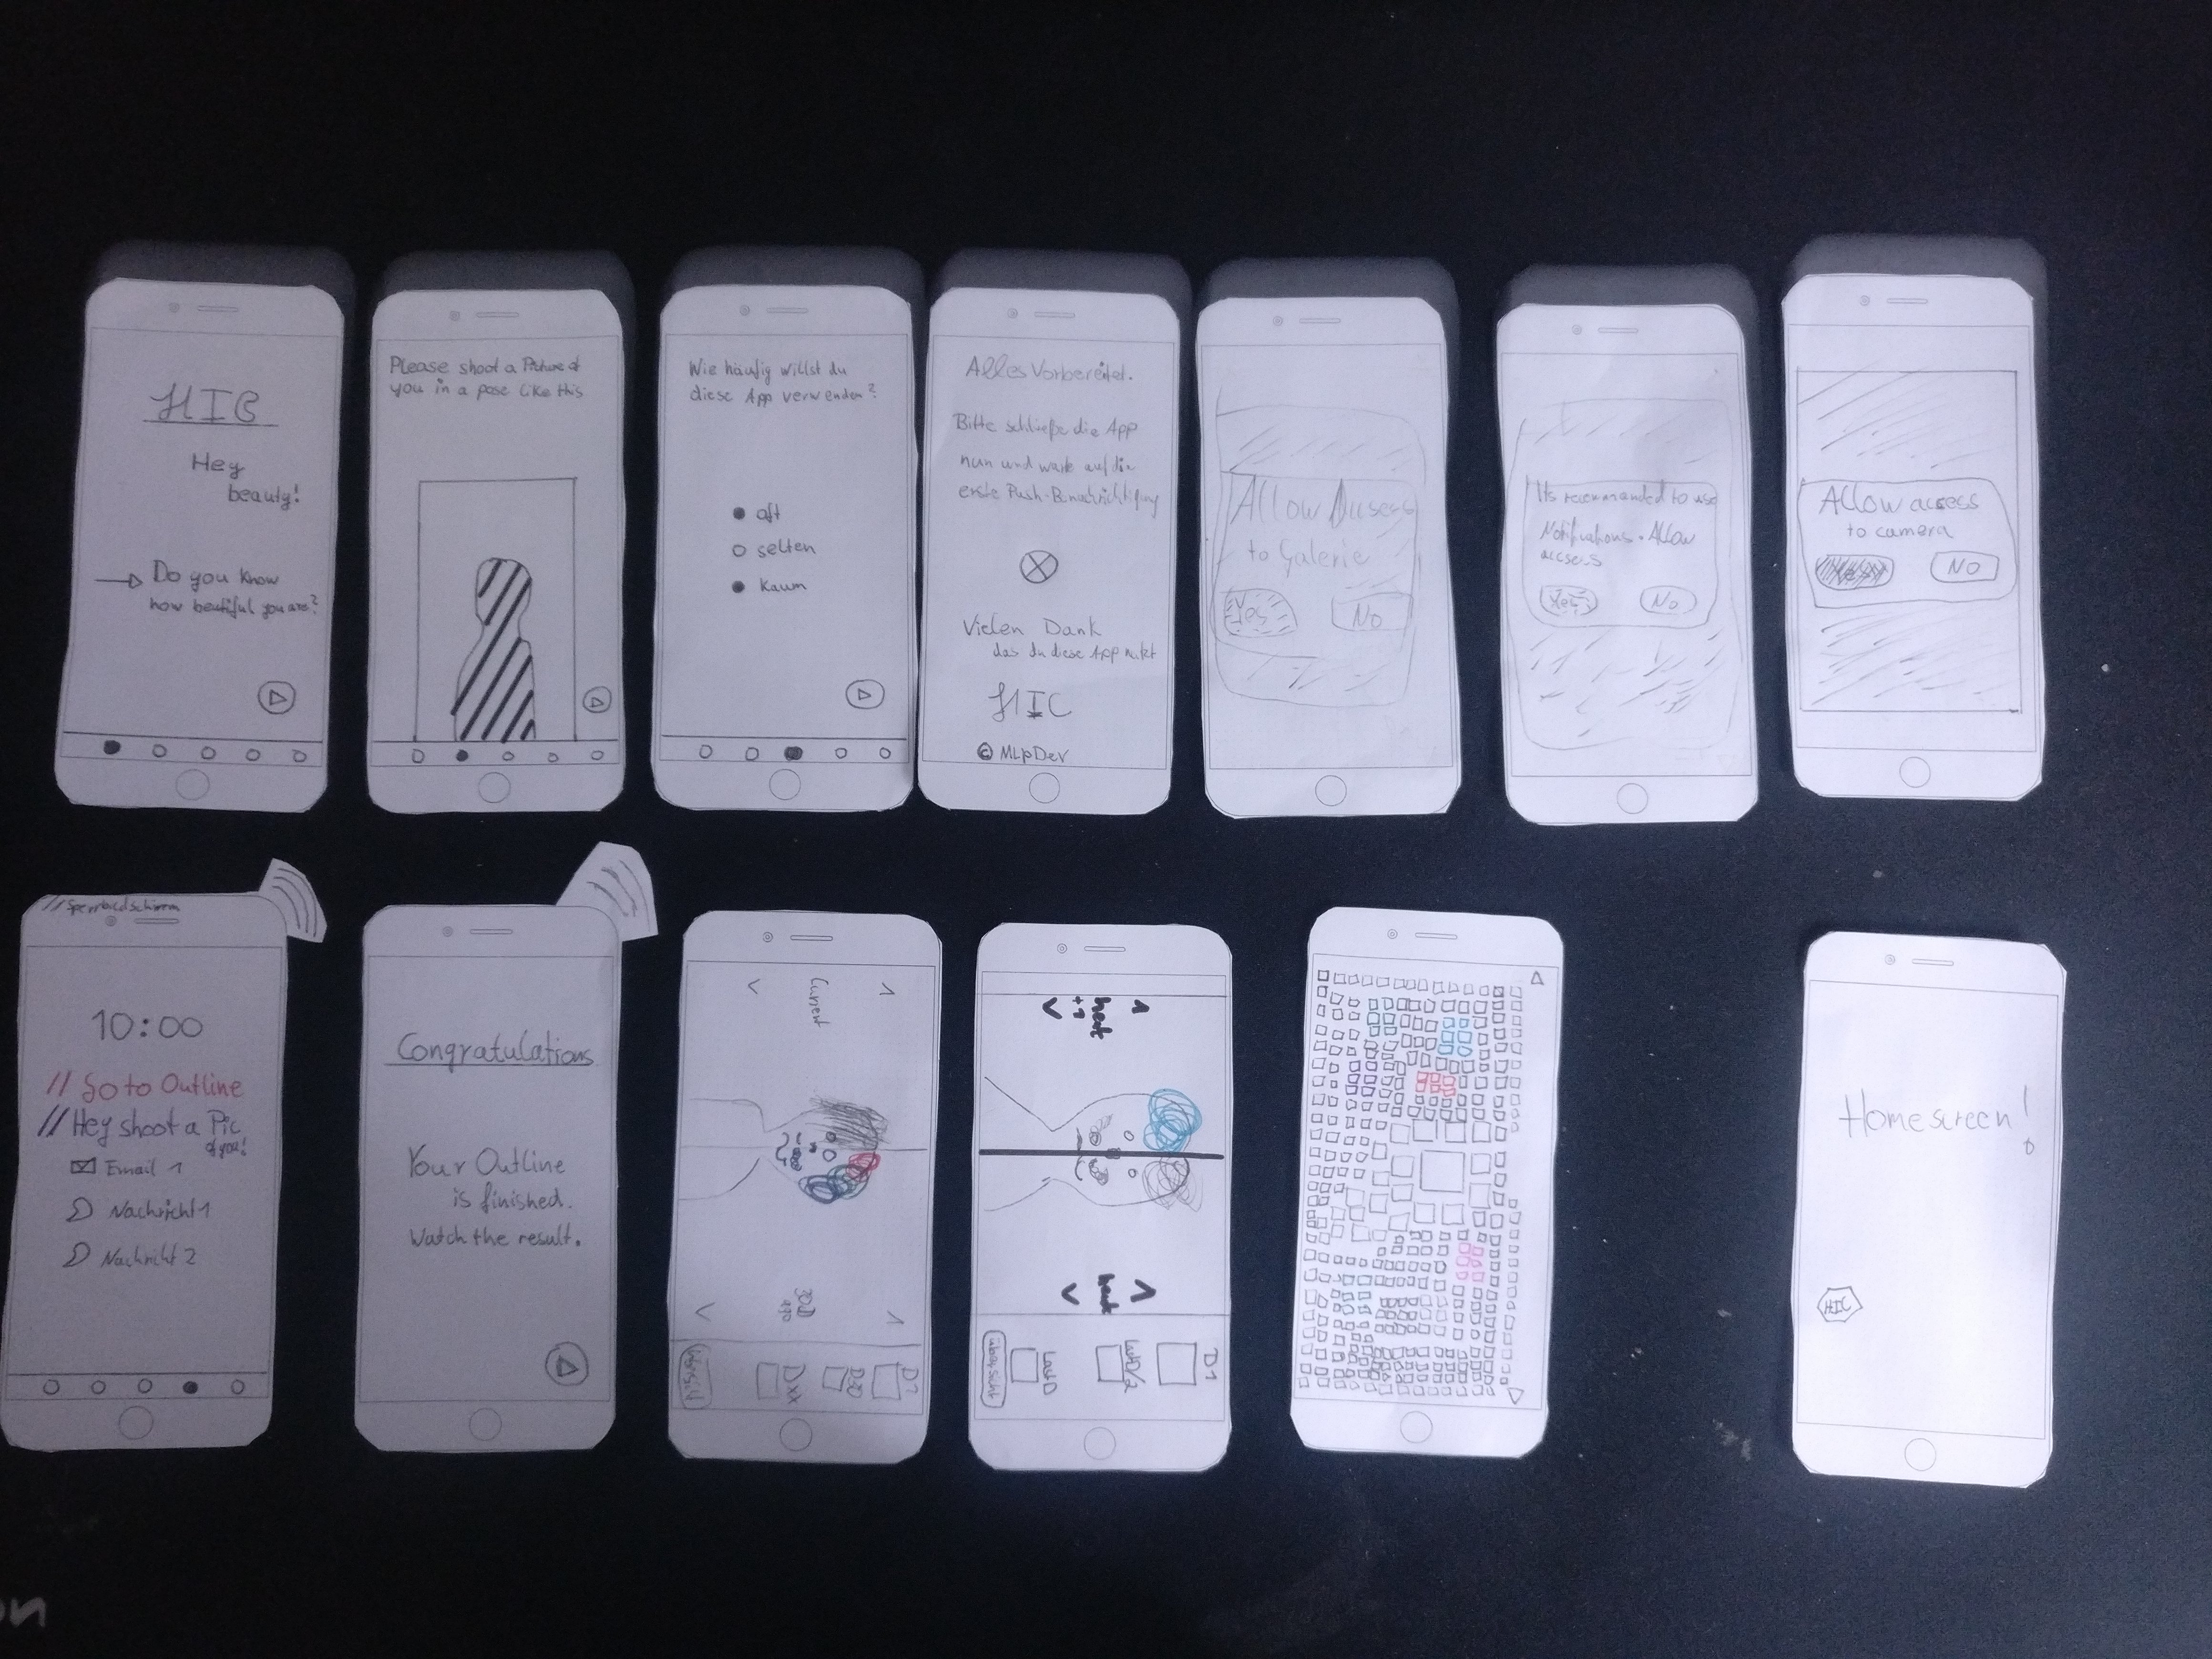 HIC
Hey
beauty!
Do you know
how beutiful you are?
Please shoot a Picture of
you in a pose like this
Wie häufig willst du
diese App verwenden?
oft
selten
kaum
Alles Vorbereitet.
Bitte schließe die App
nun und warte auf die
erste Push-Benachrichtigung
Vielen Dank
das du diese App nutzt
HIC
© MLpDev
Allow
to Galerie
Yes No
Its recommanded to use
Notifications. Allow
accsess
Yes No
Allow access
to camera
Yes NO
// Sperrbildschirm
10:00
// Go to Outline
// Hey shoot a Pic
of you!
Email 1
Nachricht 1
Nachricht 2
Congratulations
Your Outline
is finished.
Watch the result.
Current
30D
D?
D30
Dxx
Übersicht
heut
+1
heut
D1
LastD/2
LastD
Übersicht
Homescreen!
HIC
on